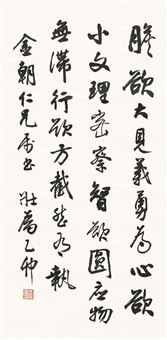 膽欲大見義勇為心欲
小文理密察智欲圓應物
無滯行欲方截然有執
金朝仁兄屬書 壯為乙卯